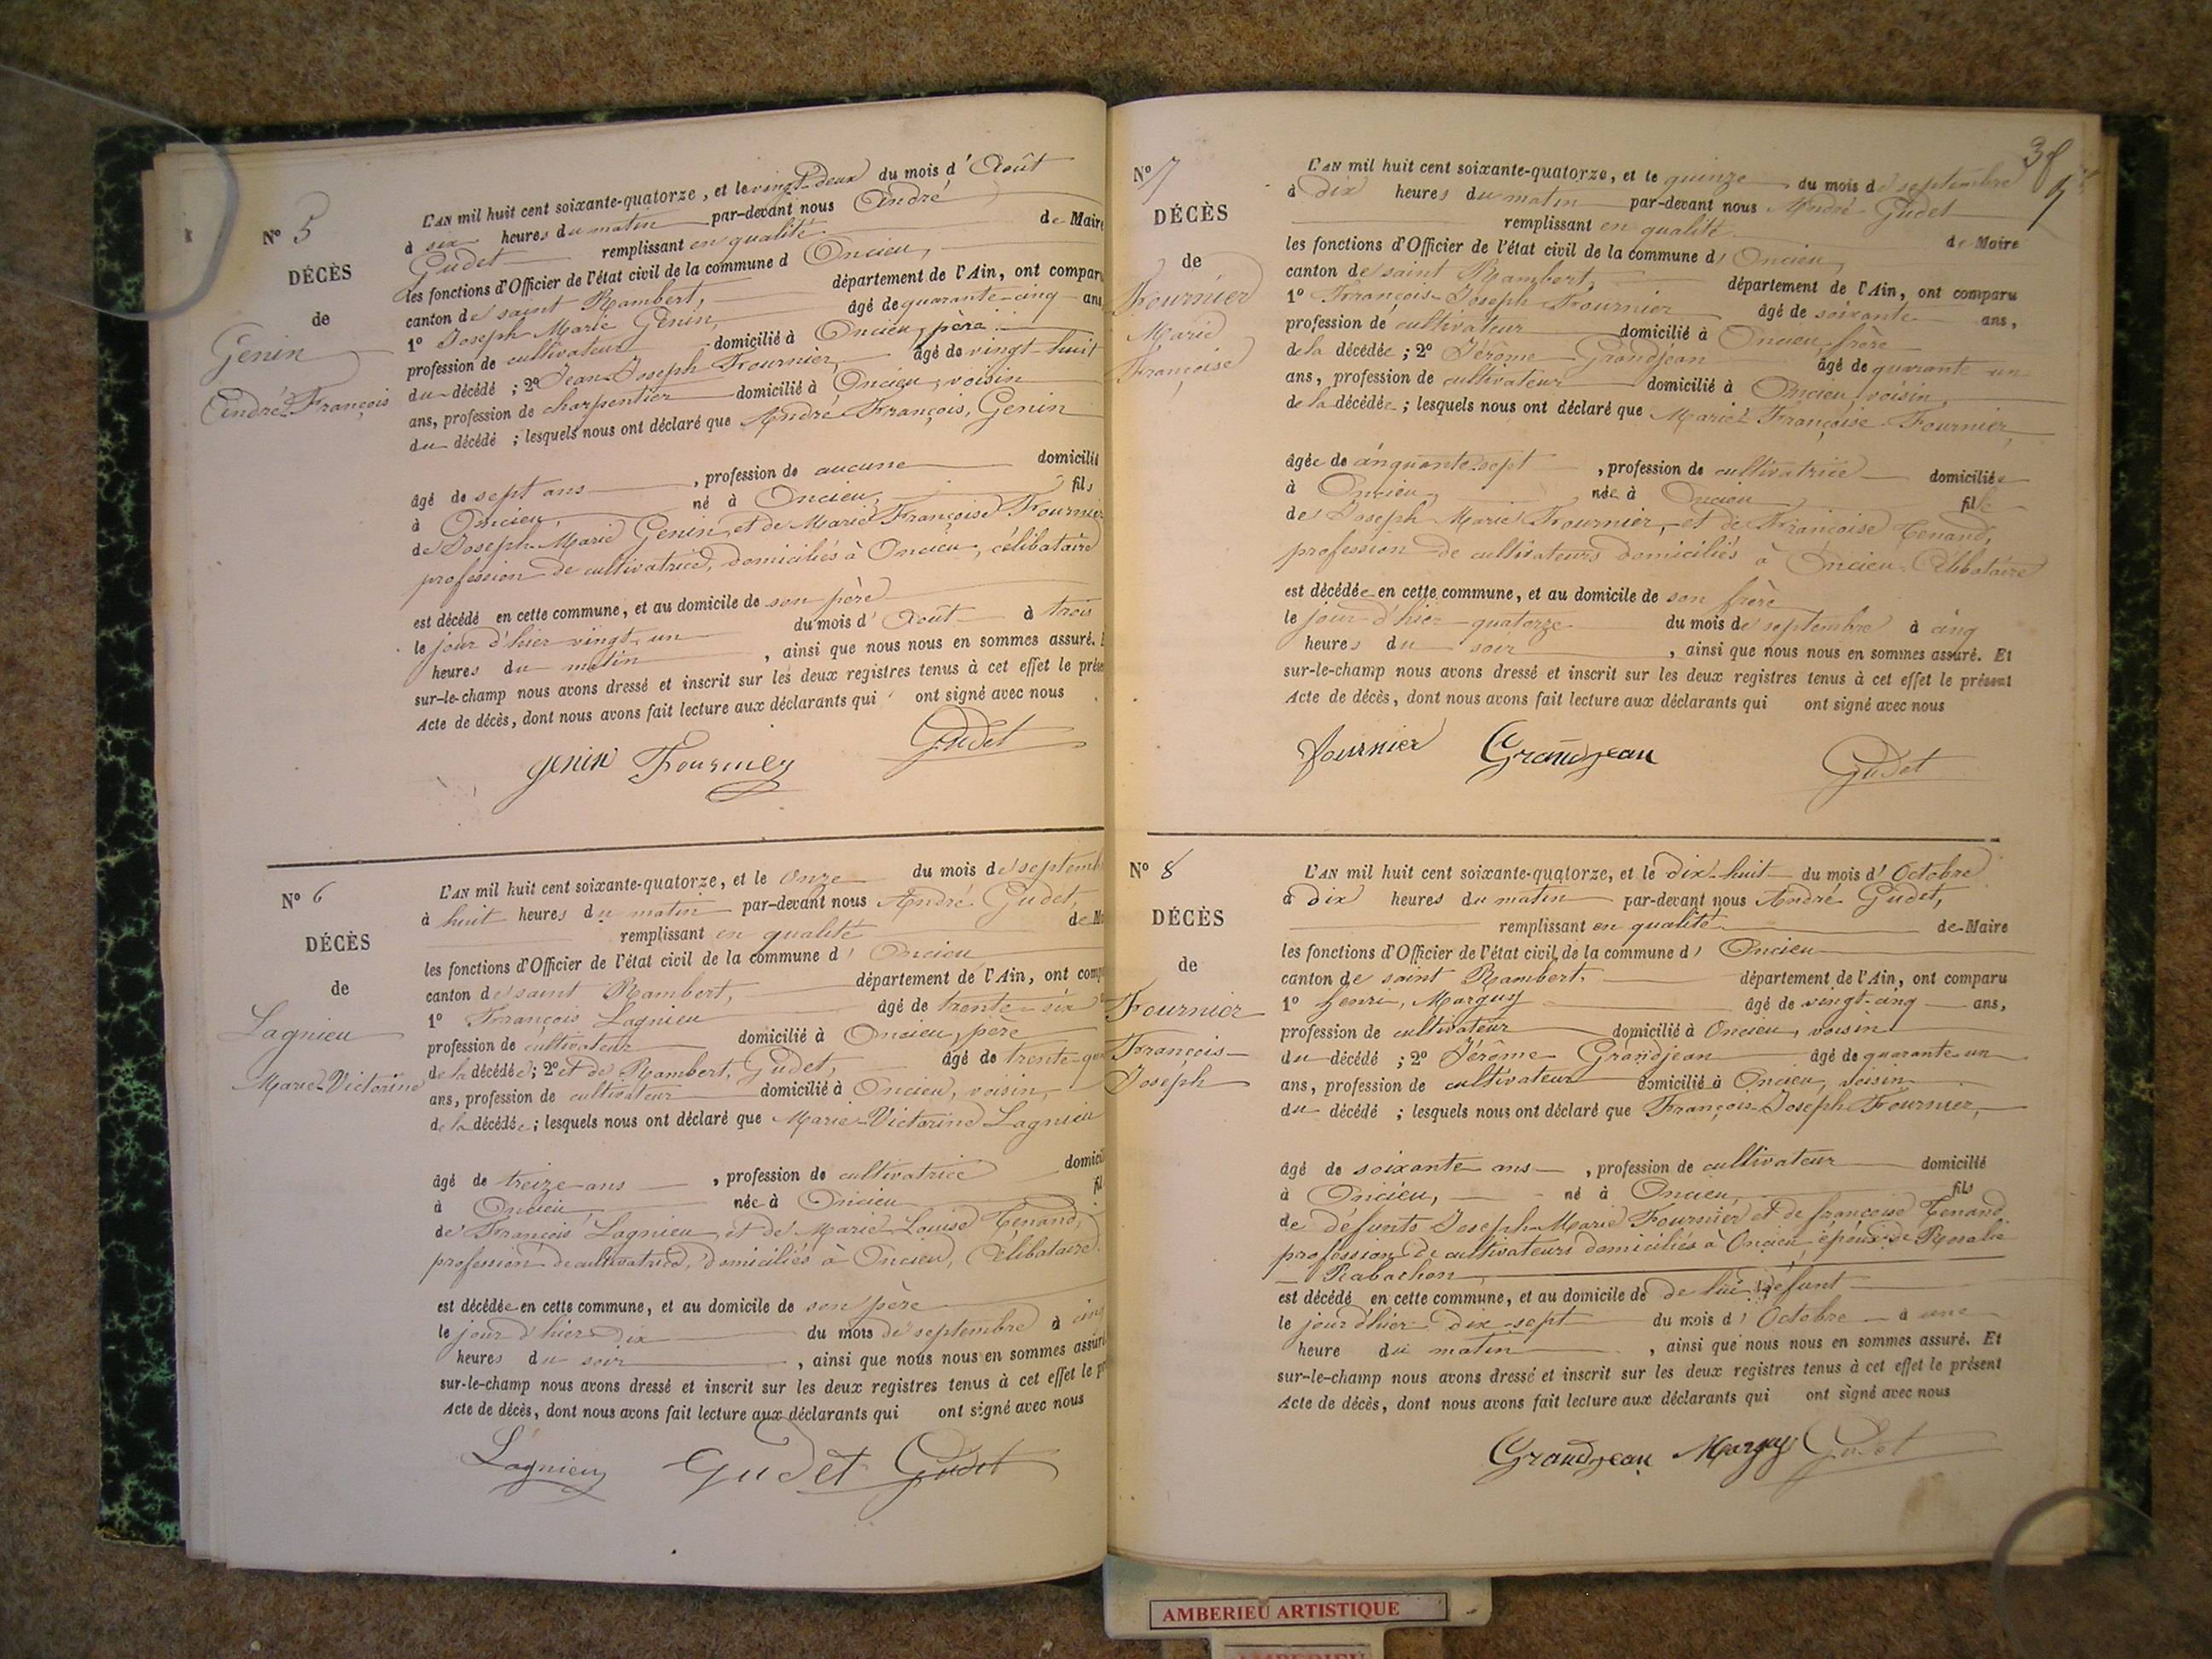 N° 5
DÉCÈS
de
Genin
André-François
L'AN mil huit cent soixante-quatorze, et le vingt-deux du mois d'Août
à six heures du matin par-devant nous André
Gudet remplissant en qualité de Maire
les fonctions d'Officier de l'état civil de la commune d Oncieu,
canton de saint Rambert, département de l'Ain, ont comparu
1° Joseph-Marie Genin, âgé de quarante-cinq ans
profession de cultivateur domicilié à Oncieu, père
du décédé ; 2° Jean-Joseph Fournier, âgé de vingt-huit
ans, profession de charpentier domicilié à Oncieu, voisin
du décédé ; lesquels nous ont déclaré que André François, Genin
âgé de sept ans , profession de aucune domicilié
à Oncieu né à Oncieu, fils
de Joseph-Marie Genin, et de Marie Françoise Fournier
profession de cultivatrice, domiciliés à Oncieu, célibataire
est décédé en cette commune, et au domicile de son père
le jour d'hier vingt-un du mois d'Août à trois
heures du matin , ainsi que nous nous en sommes assuré.
sur-le-champ nous avons dressé et inscrit sur les deux registres tenus à cet effet le prése
Acte de décès, dont nous avons fait lecture aux déclarants qui ont signé avec nous
genin Fournier Gudet
N° 6
DÉCÈS
de
Lagnieu
Marie-Victorine
L'AN mil huit cent soixante-quatorze, et le onze du mois de septemb
à huit heures du matin par-devant nous André Gudet,
remplissant en qualité de Ma
les fonctions d'Officier de l'état civil de la commune d' Oncieu
canton de saint Rambert, département de l'Ain, ont comp
1° François Lagnieu âgé de trente-six
profession de cultivateur domicilié à Oncieu, père
de la décédée ; 2° et de Rambert, Gudet, âgé de trente-
ans, profession de cultivateur domicilié à Oncieu, voisin,
de la décédée ; lesquels nous ont déclaré que Marie-Victorine Lagnieu
âgé de treize ans , profession de cultivatrice domicil
à Oncieu, née à Oncieu fil
de François Lagnieu et de Marie-Louise Tenand,
profession de cultivatrice, domiciliés à Oncieu, Célibataire
est décédée en cette commune, et au domicile de son père
le jour d'hier dix du mois de septembre à cinq
heures du soir , ainsi que nous nous en sommes assuré
sur-le-champ nous avons dressé et inscrit sur les deux registres tenus à cet effet le p
Acte de décès, dont nous avons fait lecture aux déclarants qui ont signé avec nous
Lagnieu Gudet Gudet
N° 7
DÉCÈS
de
Fournier
Marie
Françoise
L'AN mil huit cent soixante-quatorze, et le quinze du mois de septembre
à dix heures du matin par-devant nous André Gudet
remplissant en qualité de Maire
les fonctions d'Officier de l'état civil de la commune d' Oncieu,
canton de saint Rambert, département de l'Ain, ont comparu
1° François-Joseph Fournier âgé de soixante ans,
profession de cultivateur domicilié à Oncieu, frère
de la décédée ; 2° Jérôme Grandjean âgé de quarante-un
ans, profession de cultivateur domicilié à Oncieu, voisin,
de la décédée ; lesquels nous ont déclaré que Marie Françoise Fournier,
âgée de cinquante-sept , profession de cultivatrice domiciliée
à Oncieu, née à Oncieu fille
de Joseph Marie Fournier, et de Françoise Tenand,
profession de cultivateurs domiciliés à Oncieu Célibataire
est décédée en cette commune, et au domicile de son frère
le jour d'hier quatorze du mois de septembre à cinq
heures du soir , ainsi que nous nous en sommes assuré. Et
sur-le-champ nous avons dressé et inscrit sur les deux registres tenus à cet effet le présent
Acte de décès, dont nous avons fait lecture aux déclarants qui ont signé avec nous
fournier Grandjean Gudet
N° 8
DÉCÈS
de
Fournier
François-
Joseph
L'AN mil huit cent soixante-quatorze, et le dix-huit du mois d' Octobre
à dix heures du matin par-devant nous André Gudet,
remplissant en qualité de Maire
les fonctions d'Officier de l'état civil de la commune d' Oncieu
canton de saint Rambert. département de l'Ain, ont comparu
1° henri, Marguy âgé de vingt-cinq ans,
profession de cultivateur domicilié à Oncieu, voisin
du décédé ; 2° Jérôme Grandjean âgé de quarante-un
ans, profession de cultivateur domicilié à Oncieu, voisin
du décédé ; lesquels nous ont déclaré que François-Joseph Fournier,
âgé de soixante ans , profession de cultivateur domicilié
à Oncieu, né à Oncieu, fils
de défunts Joseph-Marie Fournier et de françoise Tenand
profession de cultivateurs domiciliés à Oncieu, époux de Rosalie
Rabachon
est décédé en cette commune, et au domicile de de lui défunt
le jour d'hier dix-sept du mois d' Octobre à une
heure du matin , ainsi que nous nous en sommes assuré. Et
sur-le-champ nous avons dressé et inscrit sur les deux registres tenus à cet effet le présent
Acte de décès, dont nous avons fait lecture aux déclarants qui ont signé avec nous
Grandjean Marguy Gudet
AMBERIEU ARTISTIQUE
AMBERIEU